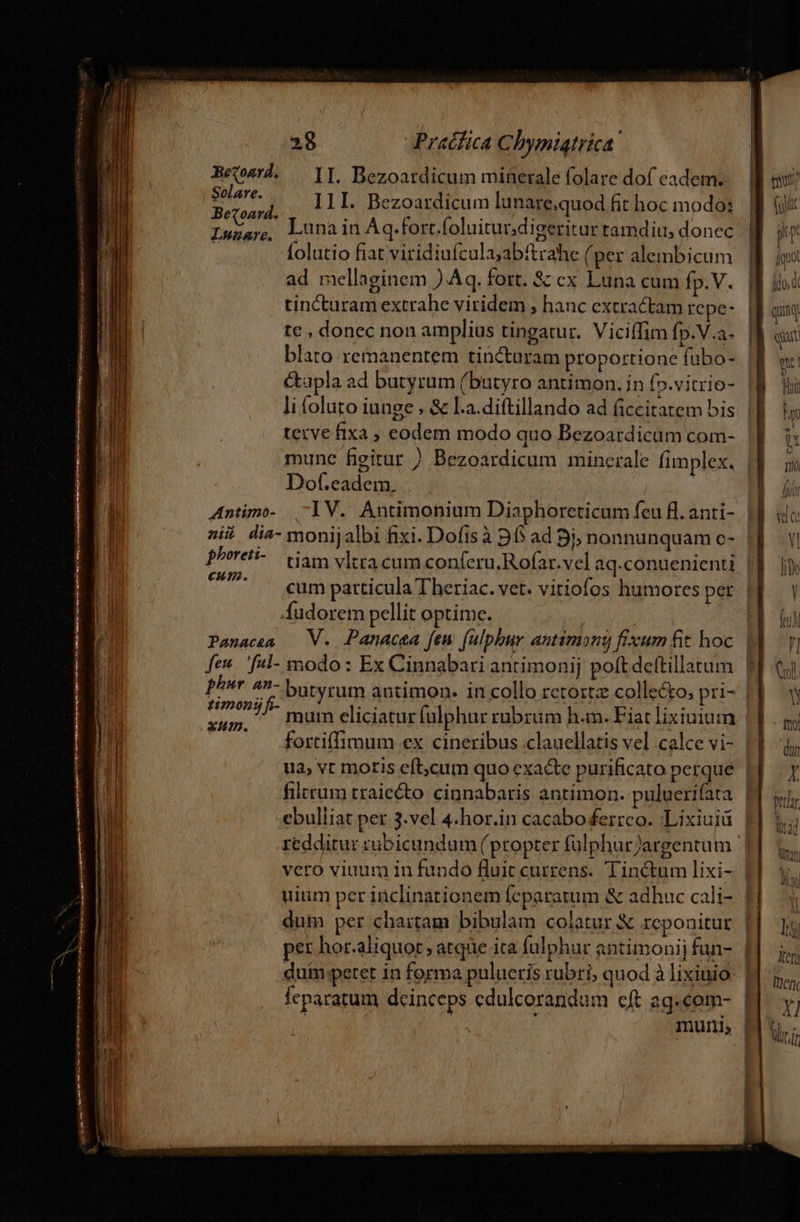 28 Practica Chymiatrica
Bezoard. II. Bezoardicum minerale ſolare doſ eadem.
Solare. III. Bezoardicum lunare, quod fit hoc modo:
Bezoard.
Lunare. Luna in Aq. fort. ſoluitur, digeritur tamdiu, donec
ſolutio fiat viridiuſcula, abſtrahe (per alembicum
ad mellaginem) Aq. fort. & ex Luna cum ſp. V.
tincturam extrahe viridem, hanc extractam repe-
te, donec non amplius tingatur. Viciſſim ſp. V. a-
blato remanentem tincturam proportione ſubo-
ctupla ad butyrum (butyro antimon. in ſp. vitrio-
li ſoluto iunge, & l. a. diſtillando ad ſiccitatem bis
terve fixa, eodem modo quo Bezoardicum com-
mune figitur) Bezoardicum minerale ſimplex.
Doſ. eadem.
Antimo- IV. Antimonium Diaphoreticum ſeu fl. anti-
nii dia- monij albi fixi. Doſis à ℈ß ad ℈j, nonnunquam e-
phoreti- tiam vltra cum conſeru. Roſar. vel aq. conuenienti
cum. cum particula Theriac. vet. vitioſos humores per
ſudorem pellit optime.
Panacæa V. Panacæa ſeu ſulphur antimonij fixum fit hoc
ſeu ſul- modo: Ex Cinnabari antimonij poſt deſtillatum
phur an- butyrum antimon. in collo retortæ collecto, pri-
timonij fi-
xum. mum eliciatur ſulphur rubrum h. m. Fiat lixiuium
fortiſſimum ex cineribus clauellatis vel calce vi-
ua, vt moris eſt, cum quo exacte purificato perque
filtrum traiecto cinnabaris antimon. pulueriſata
ebulliat per 3. vel 4. hor. in cacabo ferreo. Lixiuiũ
redditur rubicundum (propter ſulphur) argentum
vero viuum in fundo fluit currens. Tinctum lixi-
uium per inclinationem ſeparatum & adhuc cali-
dum per chartam bibulam colatur & reponitur
per hor. aliquot, atque ita ſulphur antimonij fun-
dum petet in forma pulueris rubri, quod à lixiuio
ſeparatum deinceps edulcorandum eſt aq. com-
muni,